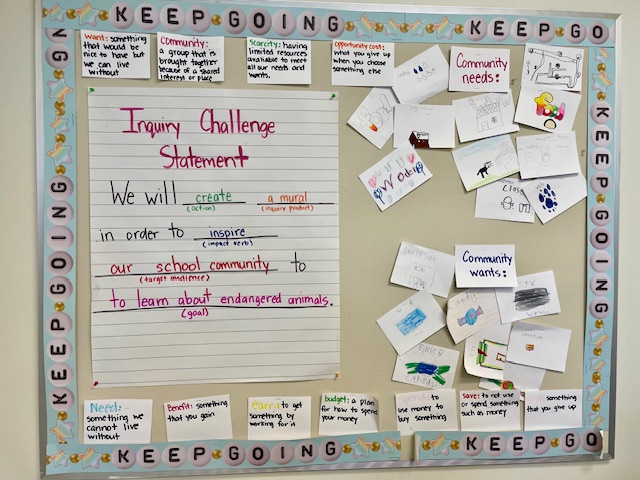 KEEP GOING
KEEP GO
NG
KEEP GOING
KEEP GOING
KEEP GOING
KEEP GO
Want: something
that would be
nice to have but
we can live
without
Community:
a group that is
brought together
because of a shared
interest or place
Scarcity: having
limited resources
available to meet
all our needs and
wants.
Opportunity cost:
what you give up
when you choose
something else
Inquiry Challenge
Statement
We will create a mural
(action) (inquiry product)
in order to inspire
(impact verb)
our school community to
(target audience)
to learn about endangered animals.
(goal)
Community
needs:
Water
Community
wants:
Candy
Need:
something we
cannot live
without
Benefit: something
that you gain
earning to get
something by
working for it
budget: a plan
for how to spend
your money
to
use money to
buy something
save: to not use
or spend something
such as money
something
that you give up
KEEP GOING
KEEP GO